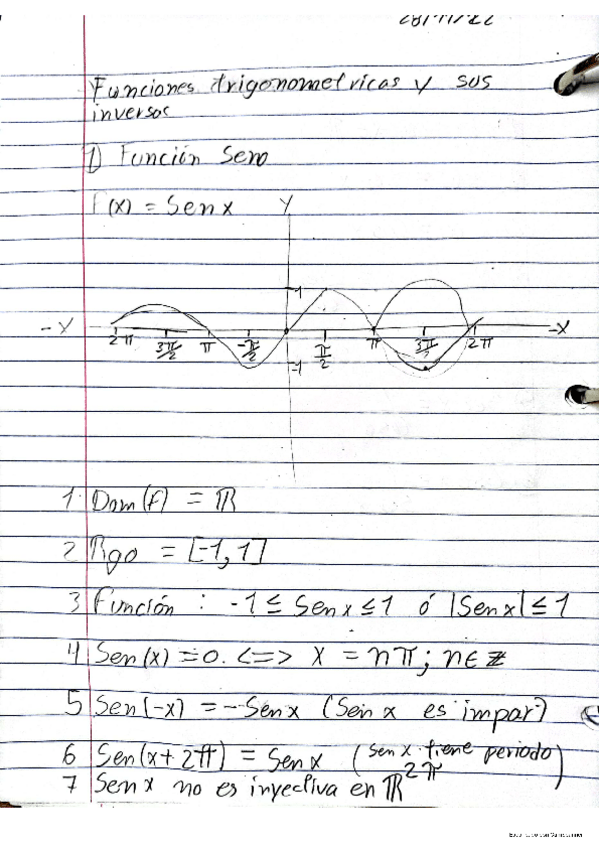 Funciones trigonometricas y sus
inversas
1) Función Seno
F(x) = Sen x
Y
1
-X -X
2π 3π/2 π -π/2 π/2 π 3π/2 2π
-1
1. Dom(f) = ℝ
2 Rgo = [-1, 1]
3 Función : -1 ≤ Sen x ≤ 1 ó |Sen x| ≤ 1
4 Sen(x) = 0. <=> X = nπ ; n∈ℤ
5 Sen(-x) = -Sen x (Sen x es impar)
6 Sen(x+2π) = Sen x (Sen x tiene periodo
2π)
7 Sen x no es inyectiva en ℝ